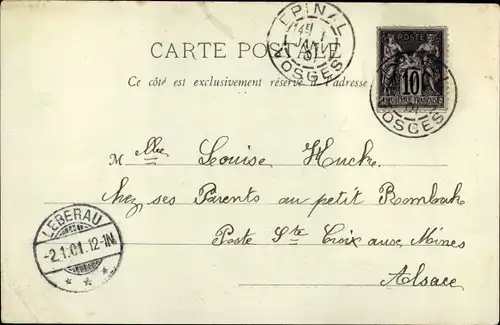 EPINAL
JANV
VOSGES
POSTE
10
OSGES
CARTE POSTALE
Ce côté est exclusivement réservé à l'adresse
Mlle Louise Huck
chez ses Parents au petit Rombach
Poste Ste Croix aux Mines
Alsace
LEBERAU
-2.1.01.12-1N.